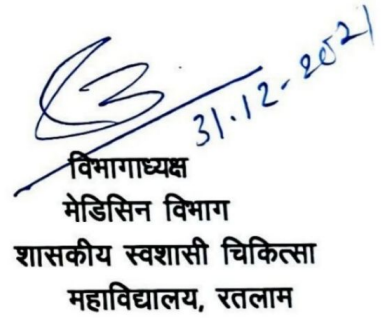 31.12-2021
विभागाध्यक्ष
मेडिसिन विभाग
शासकीय स्वशासी चिकित्सा
महाविद्यालय, रतलाम